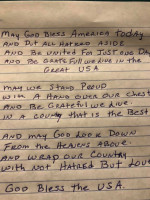 May God Bless America Today
And Put All Hatred Aside
And Be United For Just One Day
And Be Grateful We Live in the
Great USA
May we Stand Proud
with A Hand over our Chest
And Be Grateful we Live.
in A county that is the Best
And may God Look Down
From the Heavens Above.
And wrap our Country
with Not Hatred But Love
God Bless the USA.